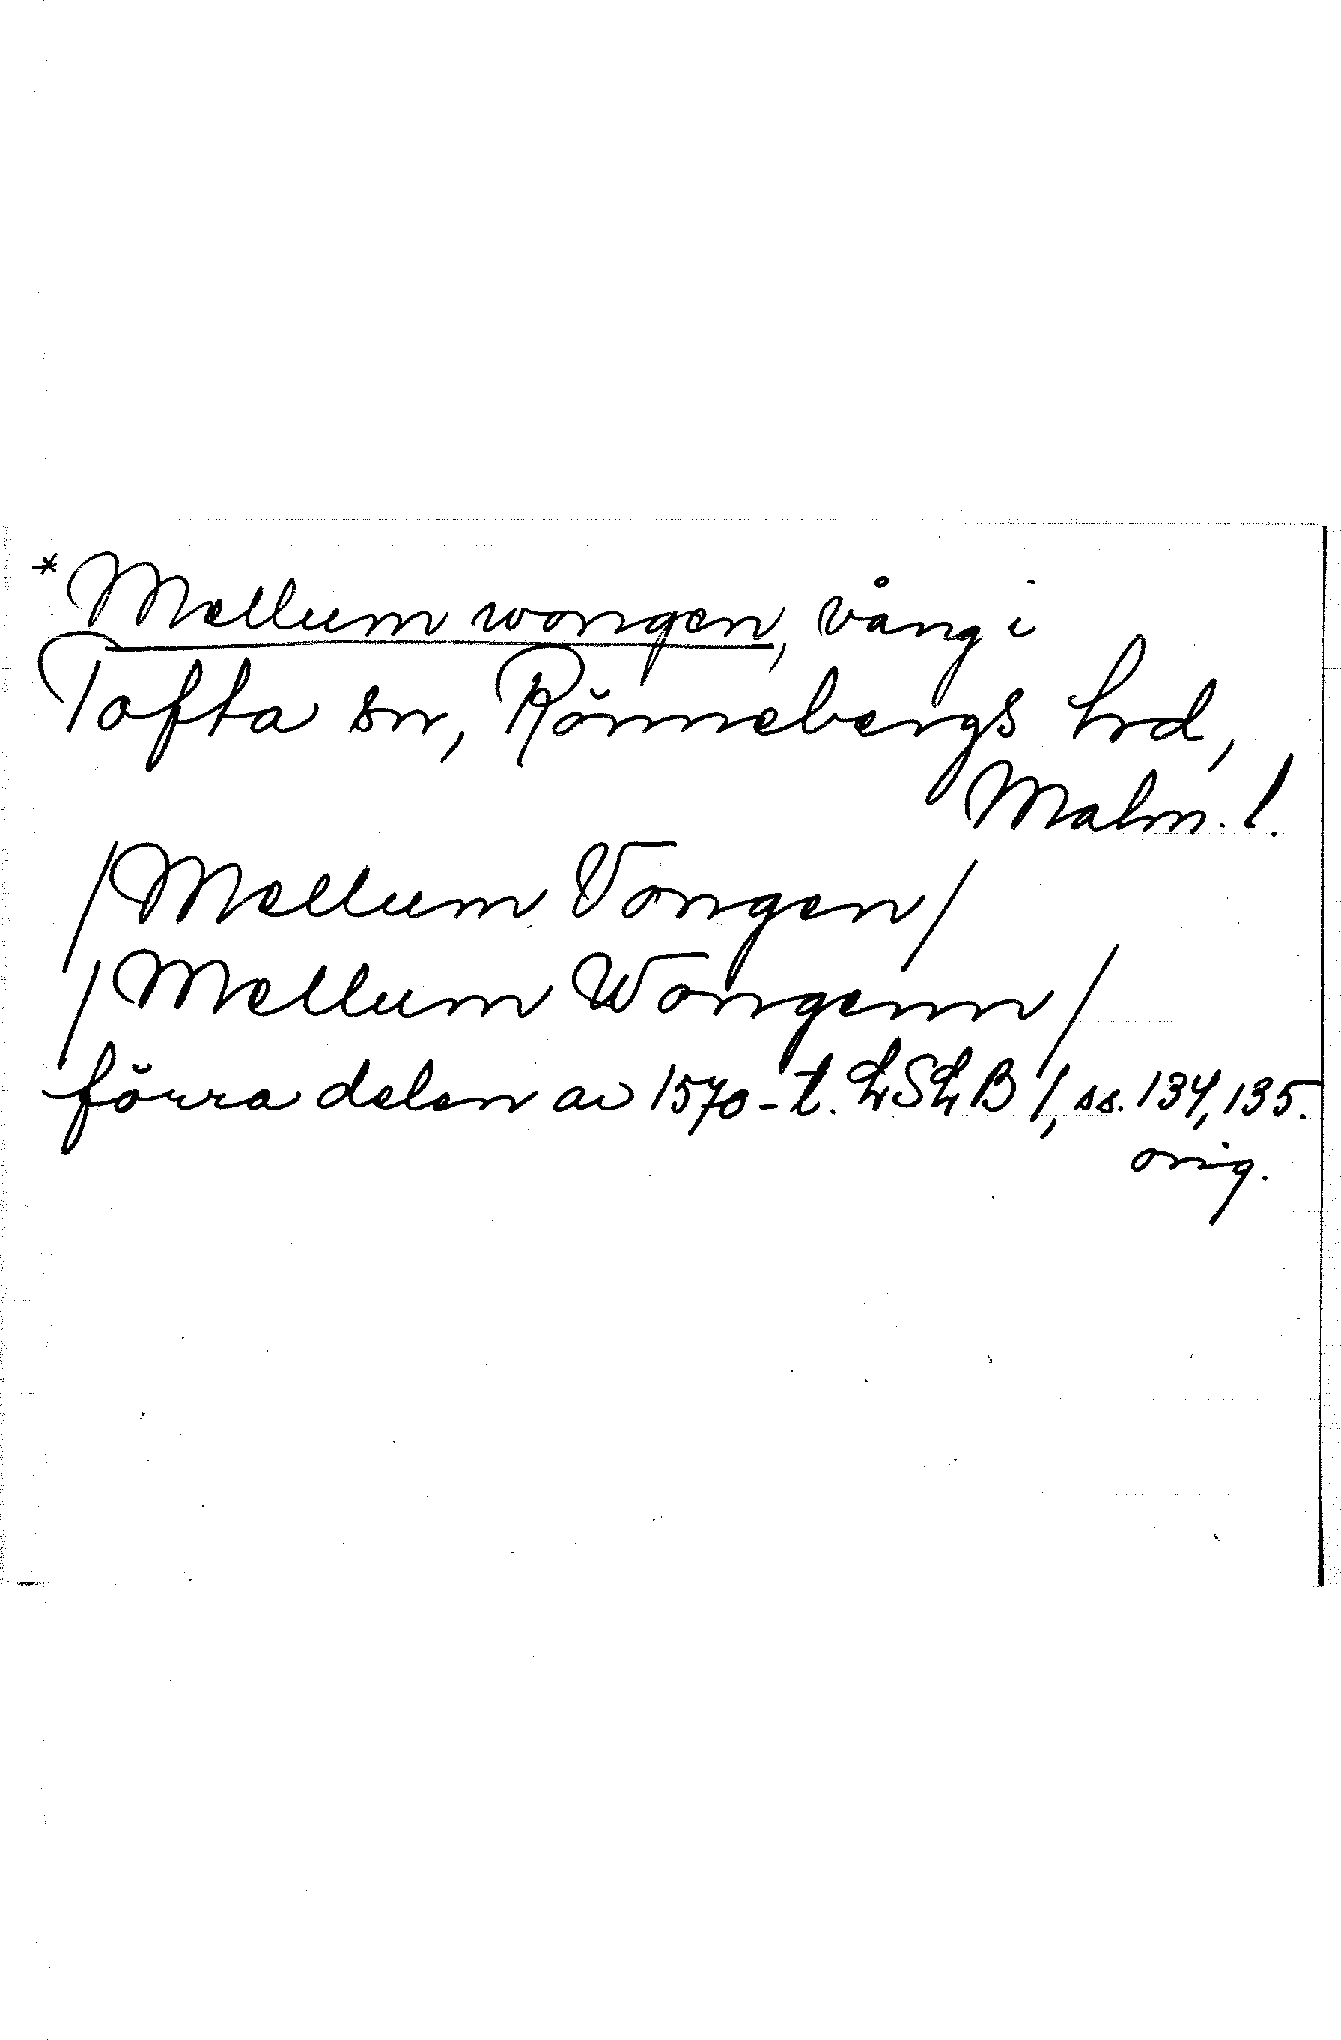 *Mellum wongen, vång i
Tofta sn, Rönnebergs hrd,
Malm. l.
/Mellum Vongen/
/Mellum Wongenn/
förra delen av 1570-t. LSLB 1, ss. 134, 135.
orig.